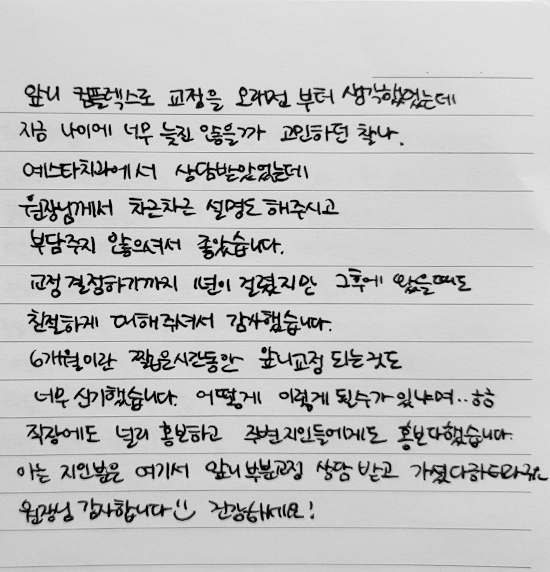 앞니 컴플렉스로 교정을 오래전 부터 생각했었는데
지금 나이에 너무 늦진 않을까 고민하던 찰나,
예스타치과에서 상담받았었는데
원장님께서 차근차근 설명도 해주시고
부담주지 않으셔서 좋았습니다.
교정 결정하기까지 1년이 걸렸지만 그후에 왔을때도
친절하게 대해주셔서 감사했습니다.
6개월이란 짧은시간동안 앞니교정 되는것도
너무 신기했습니다. 어떻게 이렇게 될수가 있냐며..ㅎㅎ
직장에도 널리 홍보하고 주변지인들에게도 홍보다했습니다.
아는 지인분은 여기서 앞니부분교정 상담 받고 가셨다하더라구요
원장님 감사합니다 건강하세요!